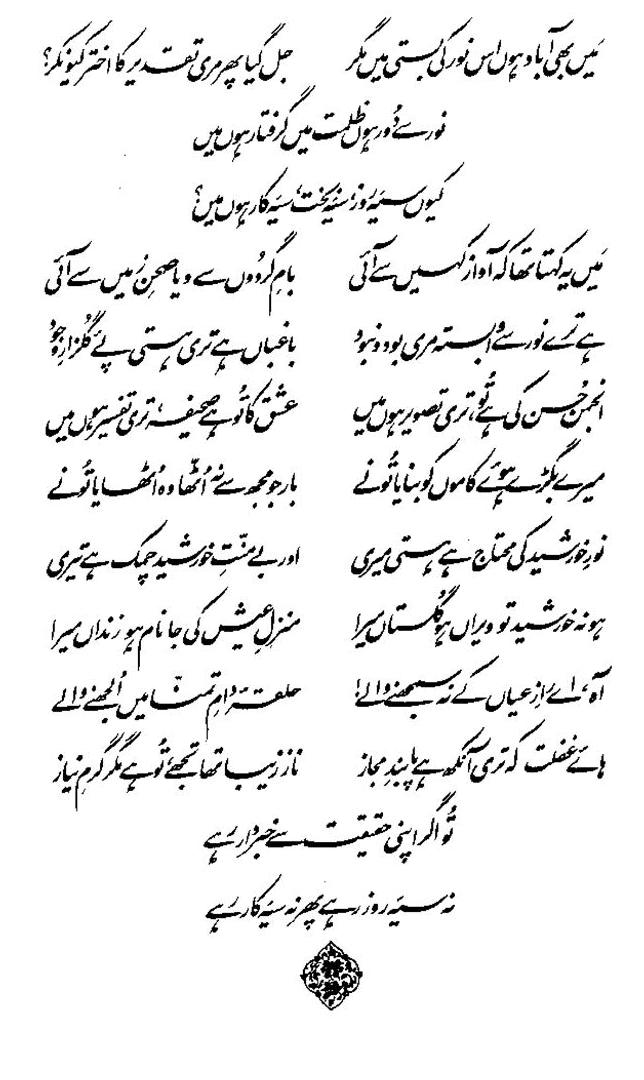 مَیں بھی آباد ہوں اس نور کی بستی میں مگر جل گیا پھر مری تقدیر کا اختر کیونکر؟
نور سے دُور ہوں ظلمت میں گرفتار ہوں مَیں
کیوں سیَہ روز، سیَہ بخت، سیَہ کار ہوں مَیں؟
مَیں یہ کہتا تھا کہ آواز کہیں سے آئی بامِ گردُوں سے و یا صحنِ زمیں سے آئی
ہے ترے نور سے وابستہ مری بود و نبود باغباں ہے تری ہستی پئے گُلزارِ وجُود
انجمن حُسن کی ہے تُو، تری تصویر ہوں مَیں عشق کا تُو ہے صحیفہ، تری تفسیر ہوں مَیں
میرے بگڑے ہوئے کاموں کو بنایا تُو نے بار جو مجھ سے نہ اُٹھّا وہ اُٹھایا تُو نے
نورِ خورشید کی محتاج ہے ہستی میری اور بے منّتِ خورشید چمک ہے تیری
ہو نہ خورشید تو ویراں ہو گُلستاں میرا منزلِ عیش کی جا نام ہو زنداں میرا
آہ، اے رازِ عیاں کے نہ سمجھنے والے! حلقۂ دامِ تمنّا میں اُلجھنے والے
ہائے غفلت کہ تری آنکھ ہے پابندِ مجاز ناز زیبا تھا تجھے، تُو ہے مگر گرمِ نیاز
تُو اگر اپنی حقیقت سے خبردار رہے
نہ سیَہ روز رہے پھر نہ سیَہ کار رہے